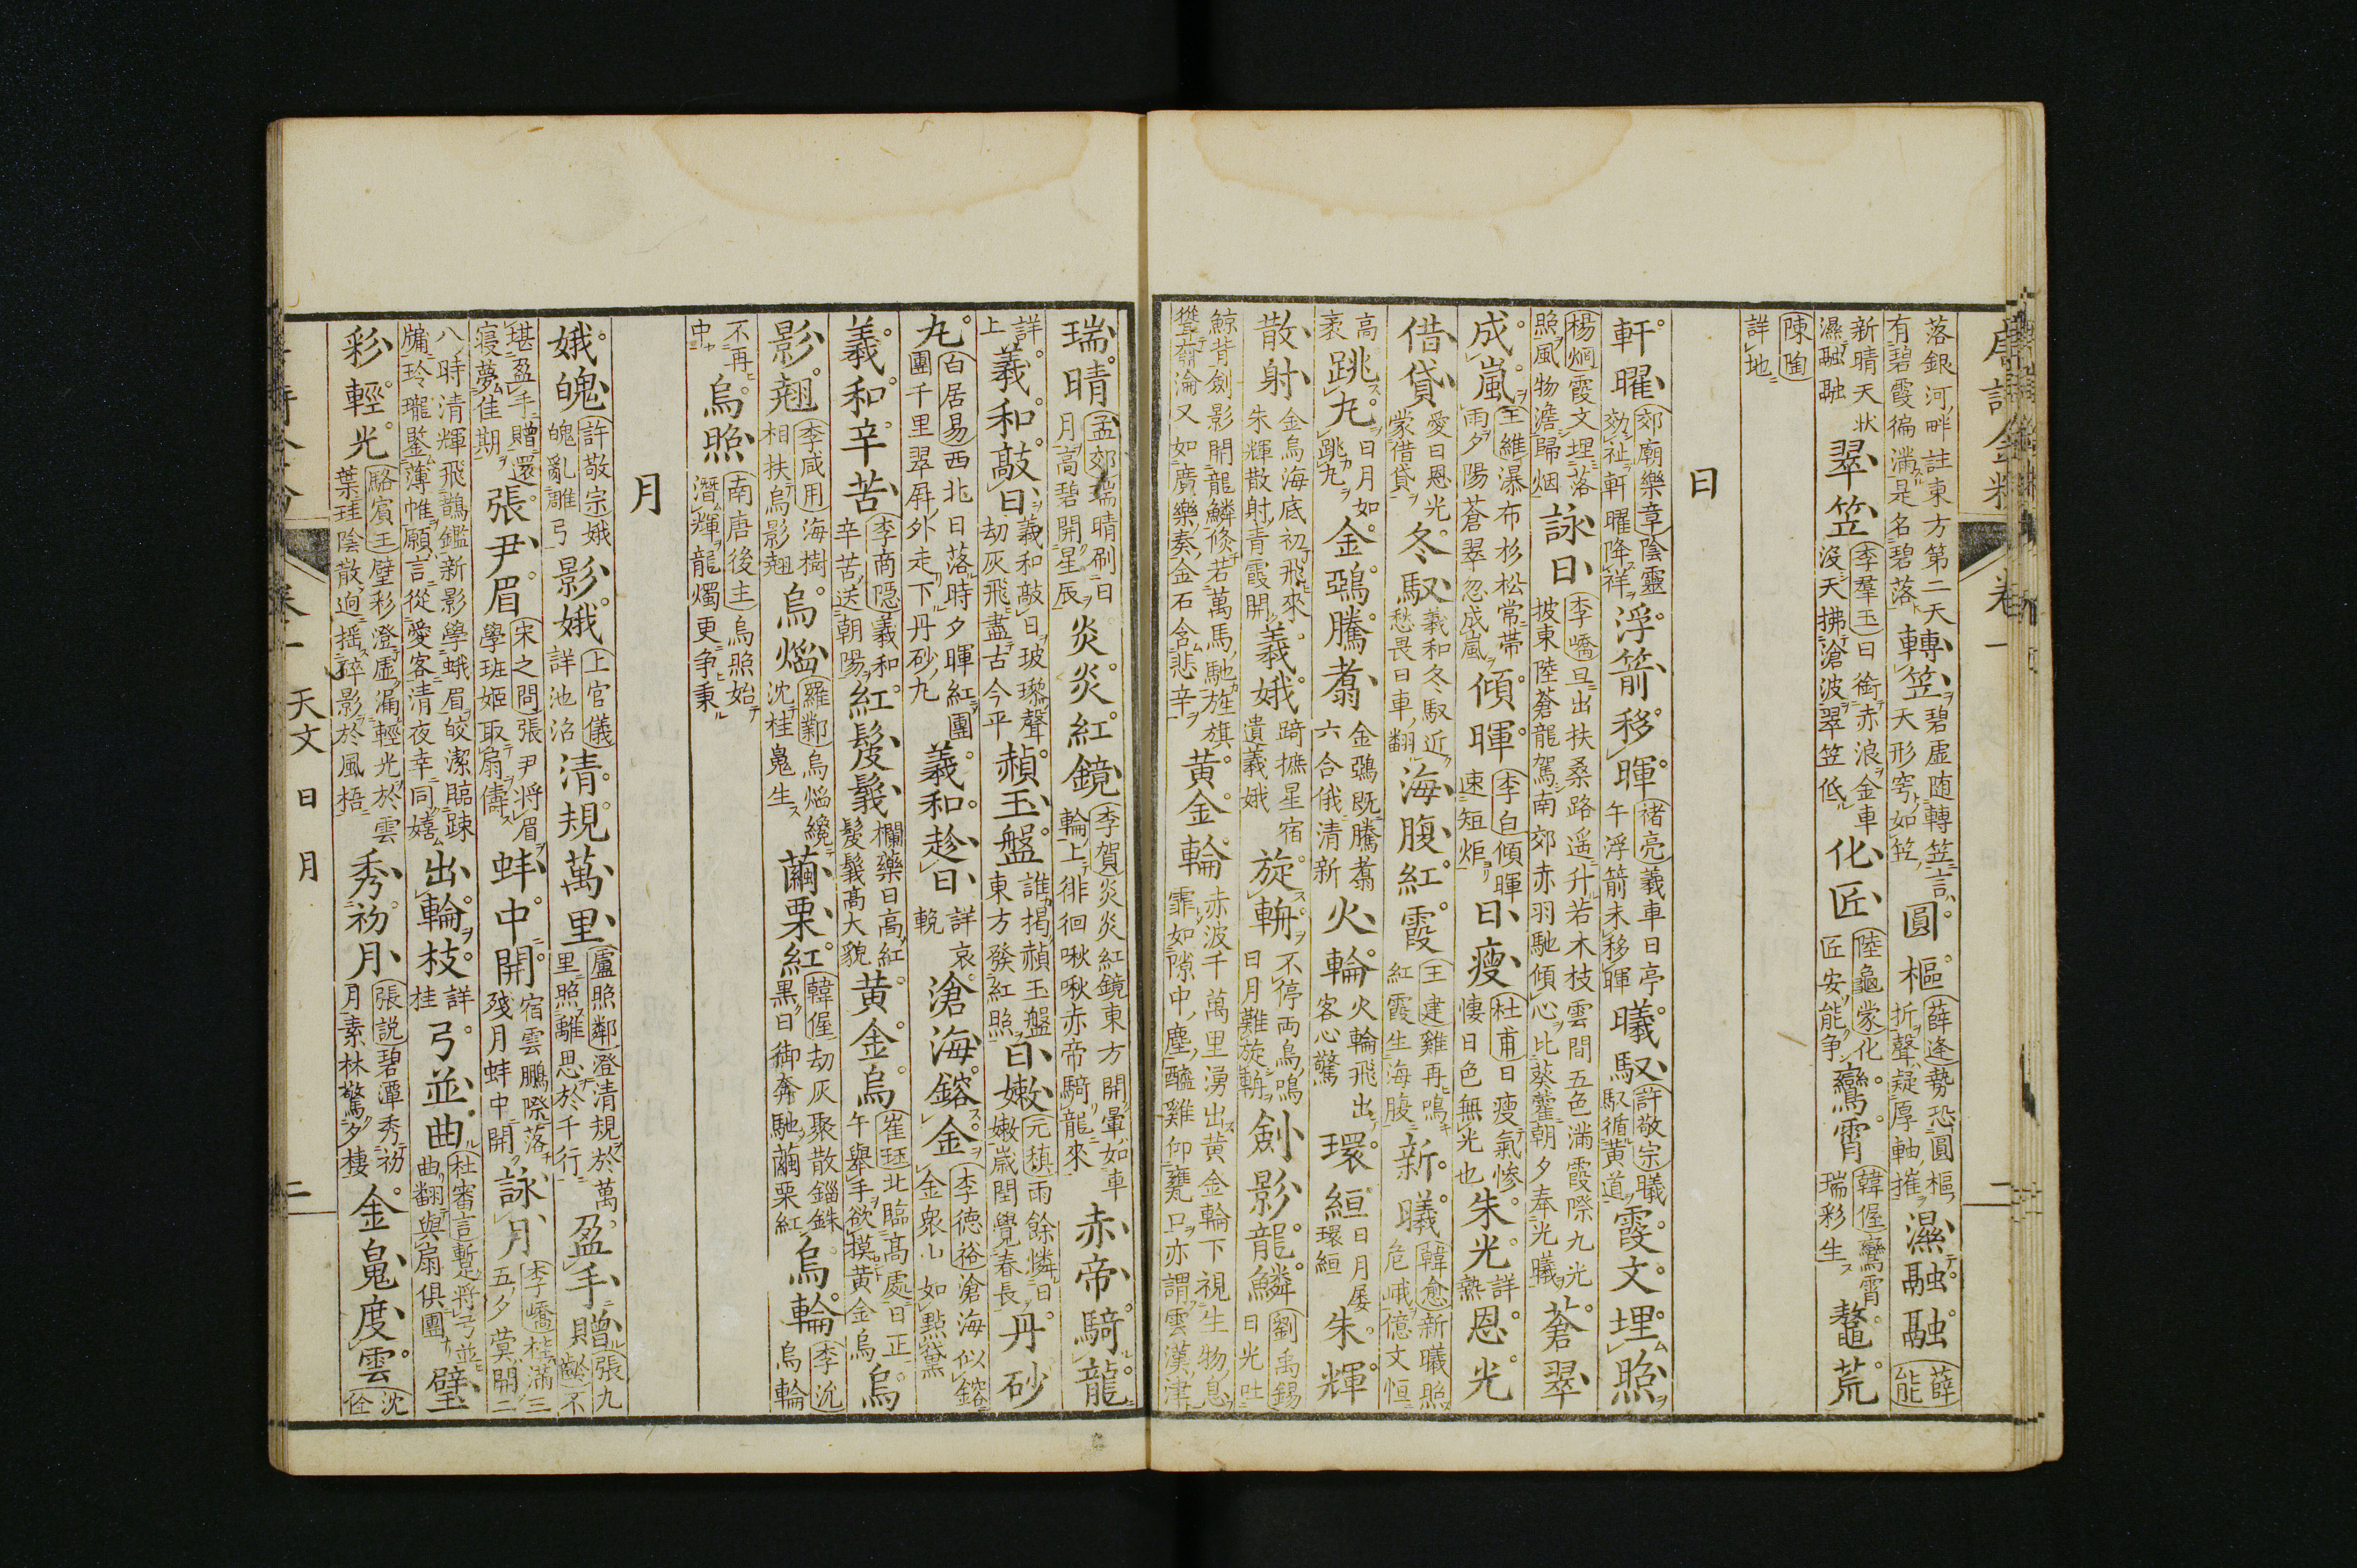 落銀河畔註東方第二天
有碧霞徧滿是名碧落
轉笠
碧虛随轉笠言
天形窄如笠
圓樞
薛逢勢恐圓樞
折聲疑厚軸摧
濕融融
薛能
新晴天状
濕融融
翠笠
李羣玉日銜赤浪金車
没天拂滄波翠笠低
化匠
陸龜蒙化
匠安能争
鸞霄
韓偓鸞霄
瑞彩生
鼇荒
陳陶
詳地
日
軒曜
郊廟樂章陰靈
効祉軒曜降祥
浮箭移暉
褚亮羲車日亭
午浮箭未移暉
曦馭
許敬宗曦
馭循黄道
霞文埋照
楊烱霞文埋落
照風物澹歸烟
詠日
李嶠旦出扶桑路遥升若木枝雲間五色滿霞際九光
披東陸蒼龍駕南郊赤羽馳傾心比葵藿朝夕奉光曦
蒼翠
成嵐
王維瀑布杉松常帶
雨夕陽蒼翠忽成嵐
傾暉
李白傾暉
速短炬
日瘦
杜甫日瘦氣惨
悽日色無光也
朱光
詳
熱
恩光
借貸
愛日恩光
蒙借貸
冬馭
羲和冬馭近
愁畏日車翻
海腹紅霞
王建雞再鳴
紅霞生海腹
新曦
韓愈新曦照
危峨億丈恒
高
袤
跳丸
日月如
跳丸
金鵶騰翥
金鵶既騰翥
六合俄清新
火輪
火輪飛出
客心驚
環絚
日月屡
環絚
朱輝
散射
金烏海底初飛來
朱輝散射青霞開
羲娥
踦摭星宿
遺羲娥
旋輈
不停兩鳥鳴
日月難旋輈
劍影龍鱗
劉禹錫
日光吐
鯨背劍影開龍鱗倏若萬馬馳旌旗
聳奫淪又如廣樂奏金石含悲辛
黄金輪
赤波千萬里湧出黄金輪下視生物息
霏如隙中塵醯雞仰甕口亦謂雲漢津
瑞晴
孟郊瑞晴刷日
月高碧開星辰
炎炎紅鏡
李賀炎炎紅鏡東方開暈如車
輪上徘徊啾啾赤帝騎龍來
赤帝騎龍
詳
上
羲和敲日
羲和敲日玻瓈聲
劫灰飛盡古今平
赬玉盤
誰揭赬玉盤
東方發紅照
日嫩
元稹雨餘憐日
嫩歳閏覺春長
丹砂
丸
白居易西北日落時夕暉紅團
團千里翠屛外走下丹砂丸
羲和趁日
詳哀
輓
滄海鎔金
李德裕滄海似鎔
金衆山如點黛
羲和辛苦
李商隠羲和
辛苦送朝陽
紅髮鬖
欄藥日高紅
髮鬖髙大貌
黄金烏
崔珏北臨高處日正
午舉手欲摸黄金烏
烏
影翹
李咸用海樹
相扶烏影翹
烏燄
羅鄴烏燄纔
沈桂鬼生
繭栗紅
韓偓劫灰聚散錙銖
黒日御奔馳繭栗紅
烏輪
李沇
烏輪
不再
中
烏照
南唐後主烏照始
潛輝龍燭更争秉
月
娥魄
許敬宗娥
魄亂雕弓
影娥
上官儀
詳池沼
清規萬里
盧照鄰澄清規於萬
里照離思於千行
盈手贈
張九
齡不
堪盈手贈還
寝夢佳期
張尹眉
宋之問張尹将眉
學班姫取扇儔
蚌中開
宿雲鵬際落
殘月蚌中開
詠月
李嶠桂滿三
五夕蓂開二
八時清輝飛鵲鑑新影學蛾眉皎潔臨疎
牖玲瓏鑒薄帷願言從愛客清夜幸同嬉
出輪枝
詳
桂
弓並曲
杜審言暫將弓並
曲翻與扇俱團
璧
彩輕光
駱賓王璧彩澄虛漏輕光於雲
葉珪陰散迥揺碎影於風梧
秀初月
張說碧潭秀初
月素林驚夕棲
金鬼度雲
沈
佺
唐詩金粉
卷一
二
天文 日 月
二